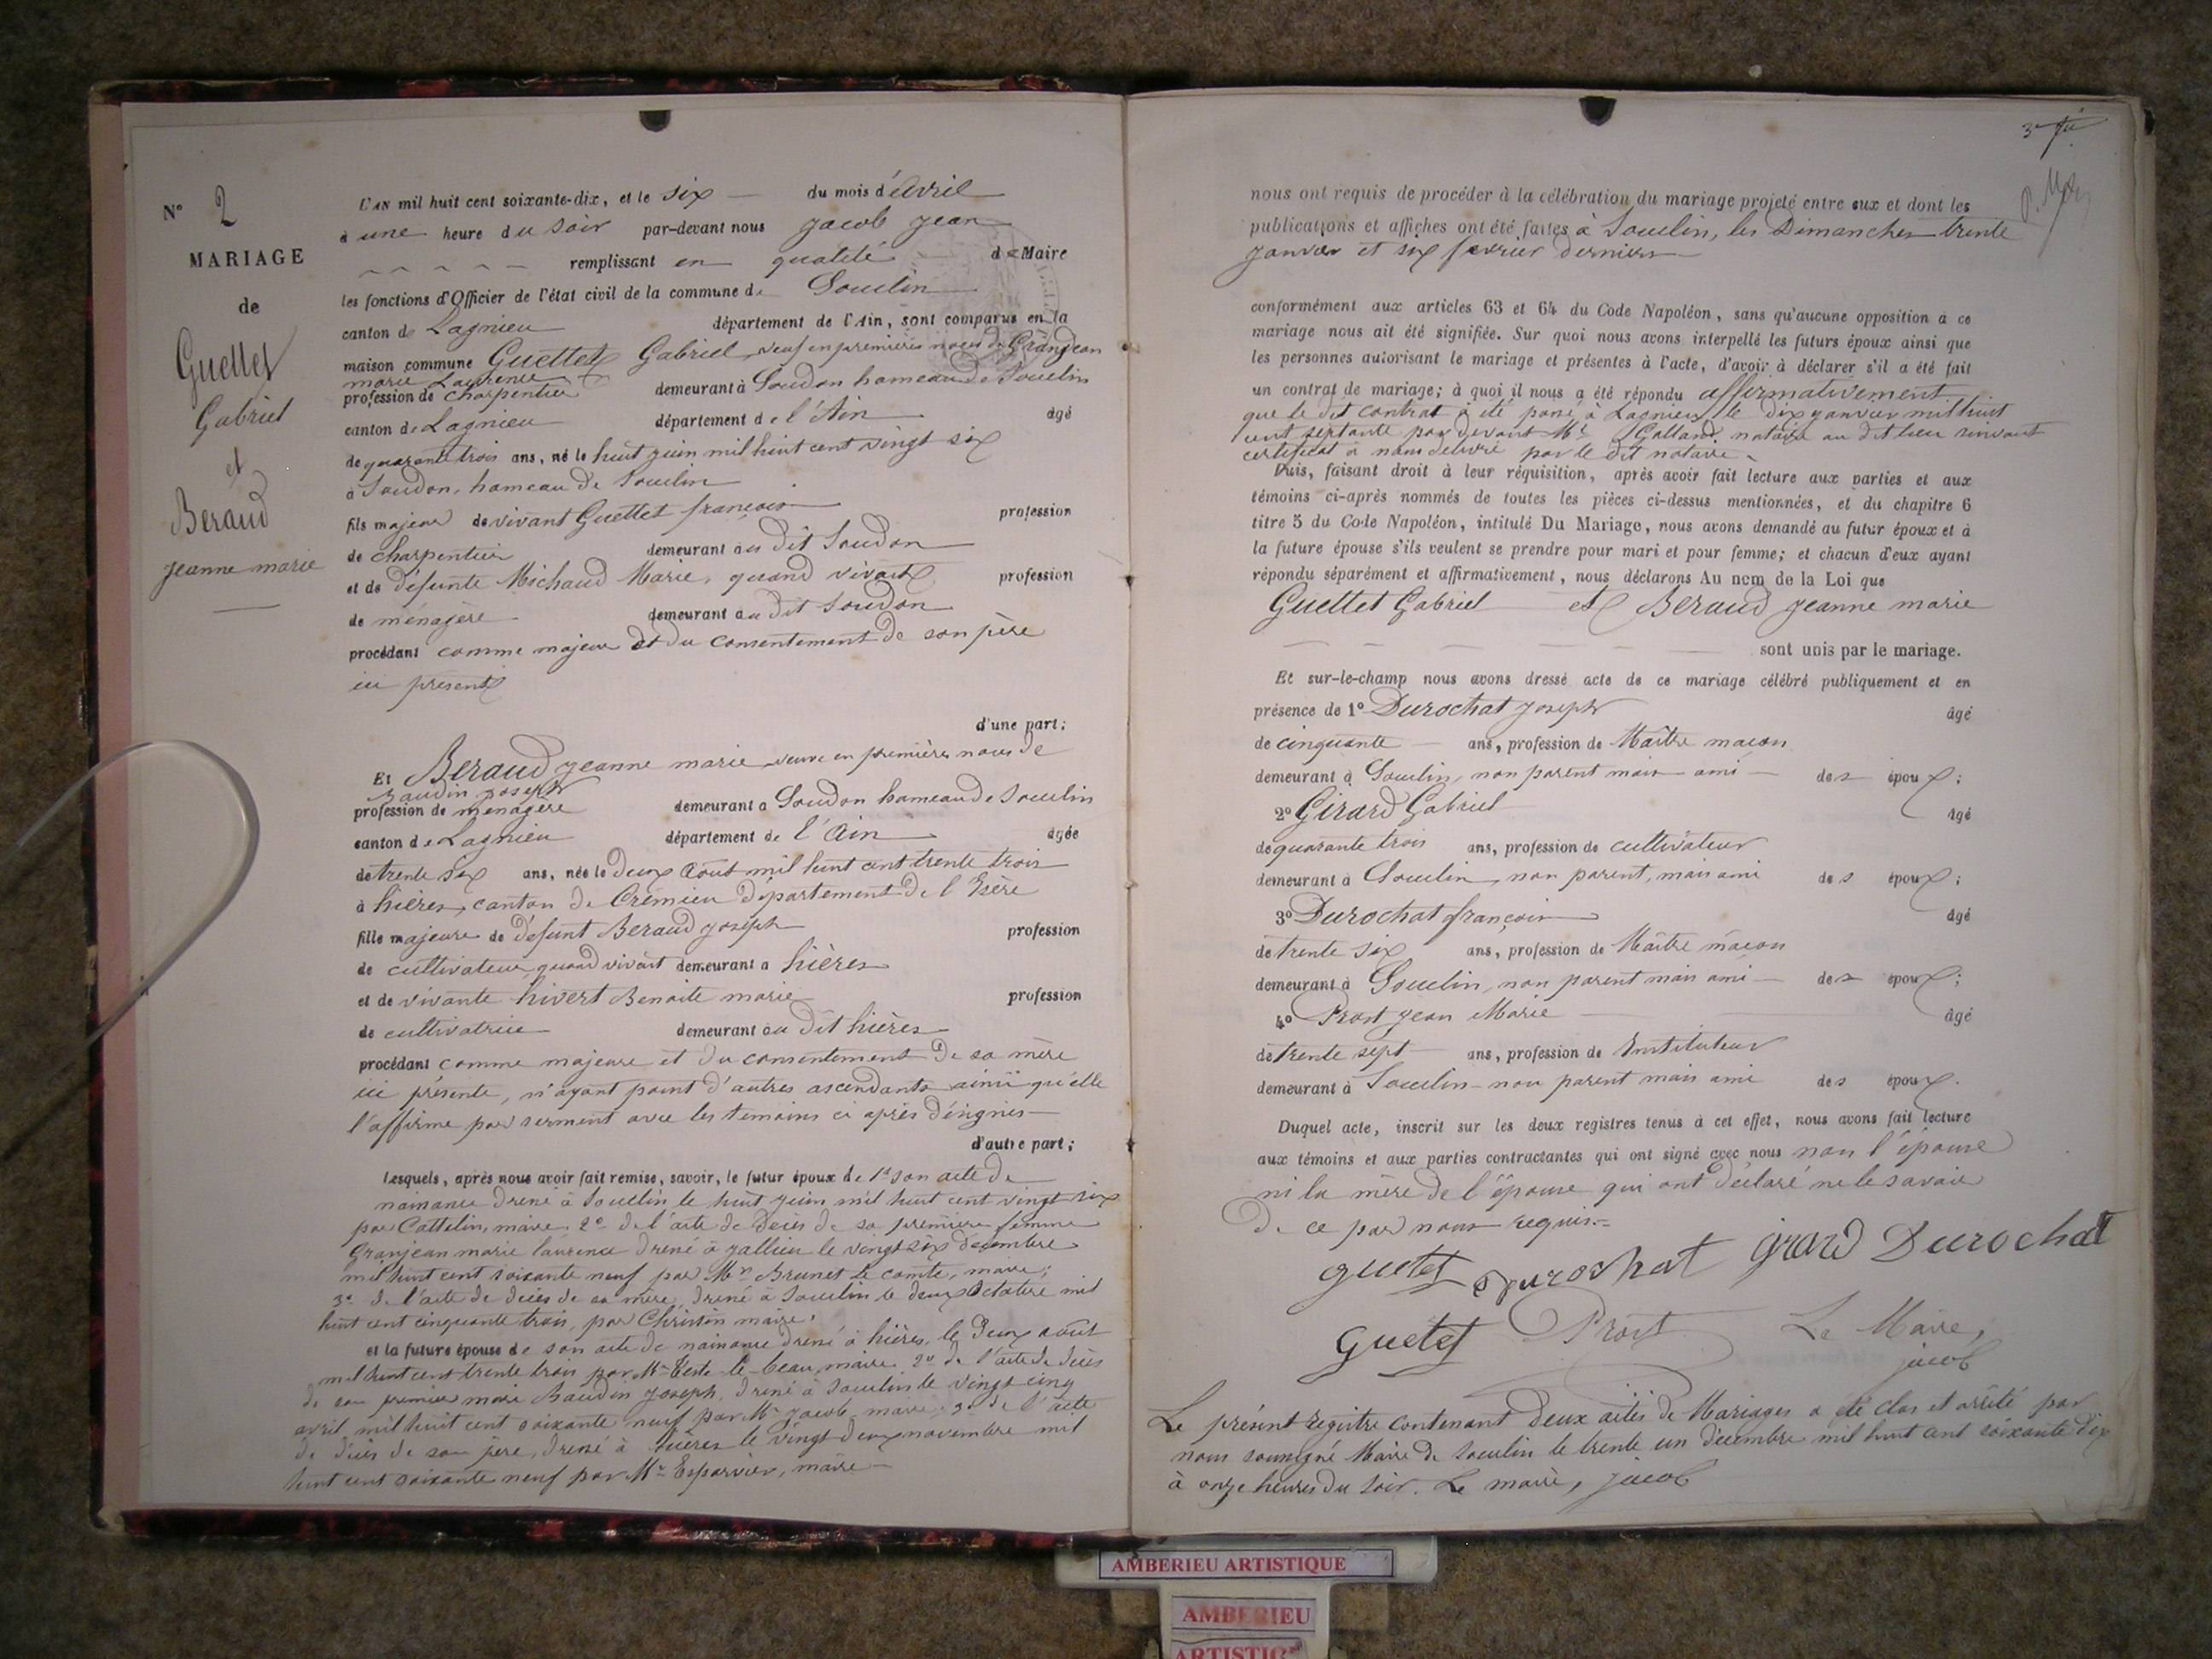 N° 2
MARIAGE
de
Guettet
Gabriel
et
Beraud
jeanne marie
L'AN mil huit cent soixante-dix, et le six du mois d'avril
à une heure du soir par-devant nous jacob jean
remplissant en qualité de Maire
les fonctions d'Officier de l'état civil de la commune de Souclin
canton de Lagnieu département de l'Ain, sont comparus en la
maison commune Guettet Gabriel, veuf en premières noces de Grandjean
marie Laurence
profession de charpentier demeurant à Soudon hameau de Souclin
canton de Lagnieu département de l'Ain âgé
de quarante trois ans, né le huit juin mil huit cent vingt six
à Soudon, hameau de Souclin
fils majeur de vivant Guettet françois profession
de charpentier demeurant au dit Soudon
et de défunte Michaud Marie, quand vivait profession
de ménagère demeurant au dit Soudon
procédant comme majeur et du consentement de son père
ici présent
d'une part;
Et Beraud jeanne marie veuve en premières noces de
Baudin joseph
profession de ménagère demeurant à Soudon hameau de Souclin
canton de Lagnieu département de l'Ain âgée
de trente six ans, née le deux Août mil huit cent trente trois
à hières, canton de Crémieu département de l'Isère
fille majeure de défunt Beraud joseph profession
de cultivateur quand vivait demeurant à hières
et de vivante hivert Benoite marie profession
de cultivatrice demeurant au dit hières
procédant comme majeure et du consentement de sa mère
ici présente, n'ayant point d'autres ascendants ainsi qu'elle
l'affirme par serment avec les témoins ci après désignés
d'autre part;
Lesquels, après nous avoir fait remise, savoir, le futur époux de 1° son acte de
naissance dressé à Souclin le huit juin mil huit cent vingt six
par Cattelin, maire 2° de l'acte de décès de sa première femme
Granjean marie laurence dressé à jallieu le vingt six décembre
mil huit cent soixante neuf par Mr Brunet Le comte, maire;
3° de l'acte de décès de sa mère, dressé à Souclin le deux Octobre mil
huit cent cinquante trois, par Christin maire;
et la future épouse de son acte de naissance dressé à hières, le deux août
mil huit cent trente trois par Mr Teste le beau, maire 2° de l'acte de décès
de son premier mari Baudin joseph, dressé à Souclin le vingt cinq
avril mil huit cent soixante neuf par Mr jacob maire; 3° de l'acte
de décès de son père, dressé à hières le vingt deux novembre mil
huit cent soixante neuf par Mr Esparvier, maire
nous ont requis de procéder à la célébration du mariage projeté entre eux et dont les
publications et affiches ont été faites à Souclin, les Dimanches trente
janvier et six février derniers
conformément aux articles 63 et 64 du Code Napoléon, sans qu'aucune opposition à ce
mariage nous ait été signifiée. Sur quoi nous avons interpellé les futurs époux ainsi que
les personnes autorisant le mariage et présentes à l'acte, d'avoir à déclarer s'il a été fait
un contrat de mariage; à quoi il nous a été répondu affirmativement
que le dit contrat a été passé à Lagnieu, le dix janvier mil huit
cent septante par devant Me Galland notaire au dit lieu suivant
certificat à nous délivré par le dit notaire.
Puis, faisant droit à leur réquisition, après avoir fait lecture aux parties et aux
témoins ci-après nommés de toutes les pièces ci-dessus mentionnées, et du chapitre 6
titre 5 du Code Napoléon, intitulé Du Mariage, nous avons demandé au futur époux et à
la future épouse s'ils veulent se prendre pour mari et pour femme; et chacun d'eux ayant
répondu séparément et affirmativement, nous déclarons Au nom de la Loi que
Guettet Gabriel et Beraud jeanne marie
sont unis par le mariage.
Et sur-le-champ nous avons dressé acte de ce mariage célébré publiquement et en
présence de 1° Durochat joseph âgé
de cinquante ans, profession de Maître maçon
demeurant à Souclin, non parent mais ami des époux;
2° Girard Gabriel âgé
de quarante trois ans, profession de cultivateur
demeurant à Souclin, non parent, mais ami des époux;
3° Durochat françois âgé
de trente six ans, profession de Maître maçon
demeurant à Souclin, non parent mais ami des époux;
4° Prost jean Marie âgé
de trente sept ans, profession de Instituteur
demeurant à Souclin non parent mais ami des époux.
Duquel acte, inscrit sur les deux registres tenus à cet effet, nous avons fait lecture
aux témoins et aux parties contractantes qui ont signé avec nous non l'épouse
ni la mère de l'épouse qui ont déclaré ne le savoir
de ce par nous requis.=
guetet durochat girard Durochat
guetet Prost Le Maire,
jacob
Le présent registre contenant deux actes de Mariages a été clos et arrêté par
nous soussigné Maire de Souclin le trente un décembre mil huit cent soixante dix
à onze heures du soir. Le maire, jacob
AMBERIEU ARTISTIQUE
AMBERIEU